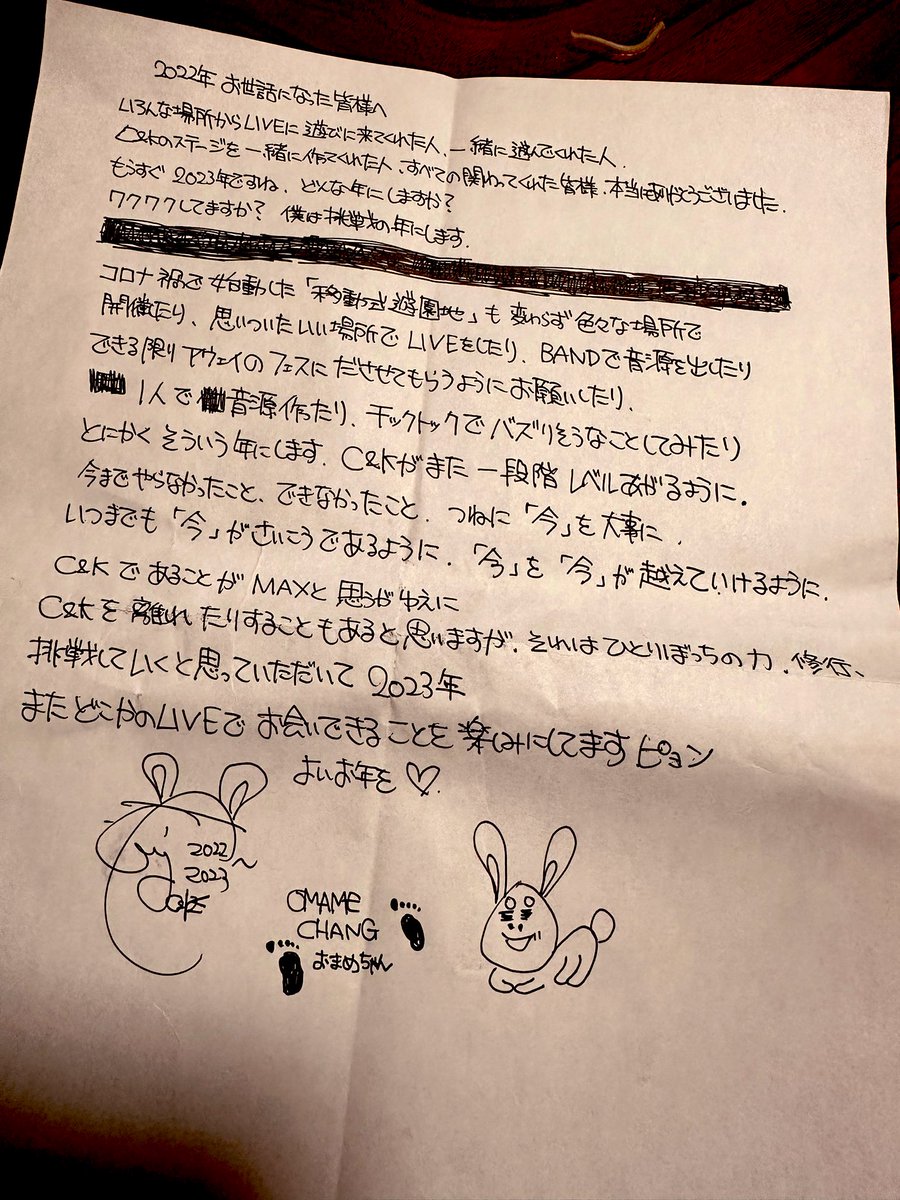 2022年 お世話になった皆様へ
いろんな場所からLIVEに遊びに来てくれた人、一緒に遊んでくれた人、
C&Kのステージを一緒に作ってくれた人、すべての関わってくれた皆様、本当にありがとうございました。
もうすぐ2023年ですね、どんな年にしますか?
ワクワクしてますか? 僕は挑戦の年にします。
コロナ禍で始動した「移動式遊園地」も変わらず色々な場所で
開催したり、思いついたいい場所でLIVEをしたり、BANDで音源を出したり
できる限りアウェイのフェスにださせてもらうようにお願いしたり、
1人で音源作ったり、チックトックでバズりそうなことしてみたり
とにかくそういう年にします。C&Kがまた一段階レベルあがるように。
今までやらなかったこと、できなかったこと、つねに「今」を大事に、
いつまでも「今」がさいこうであるように、「今」を「今」が越えていけるように、
C&KであることがMAXと思うがゆえに
C&Kを離れたりすることもあると思いますが、それはひとりぼっちの力、修行、
挑戦していくと思っていただいて 2023年
またどこかのLIVEでお会いできることを楽しみにしてますピョン
よいお年を♡
2022~
2023
OMAME
CHANG
おまめちゃん